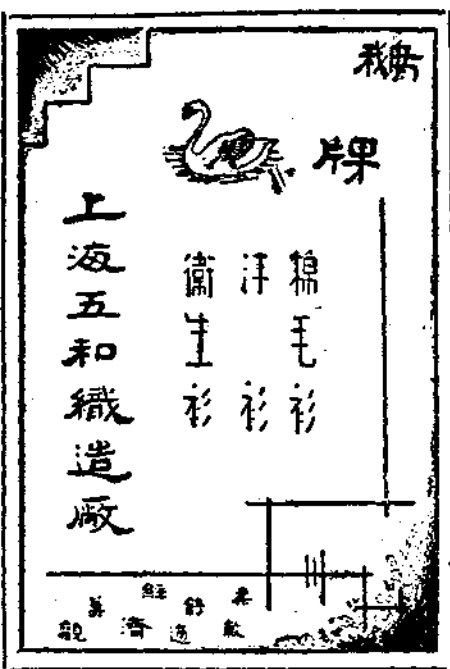 鵝
牌
棉毛衫
衫
衛生衫
上海五和織造廠
柔軟
舒適
經濟
美觀